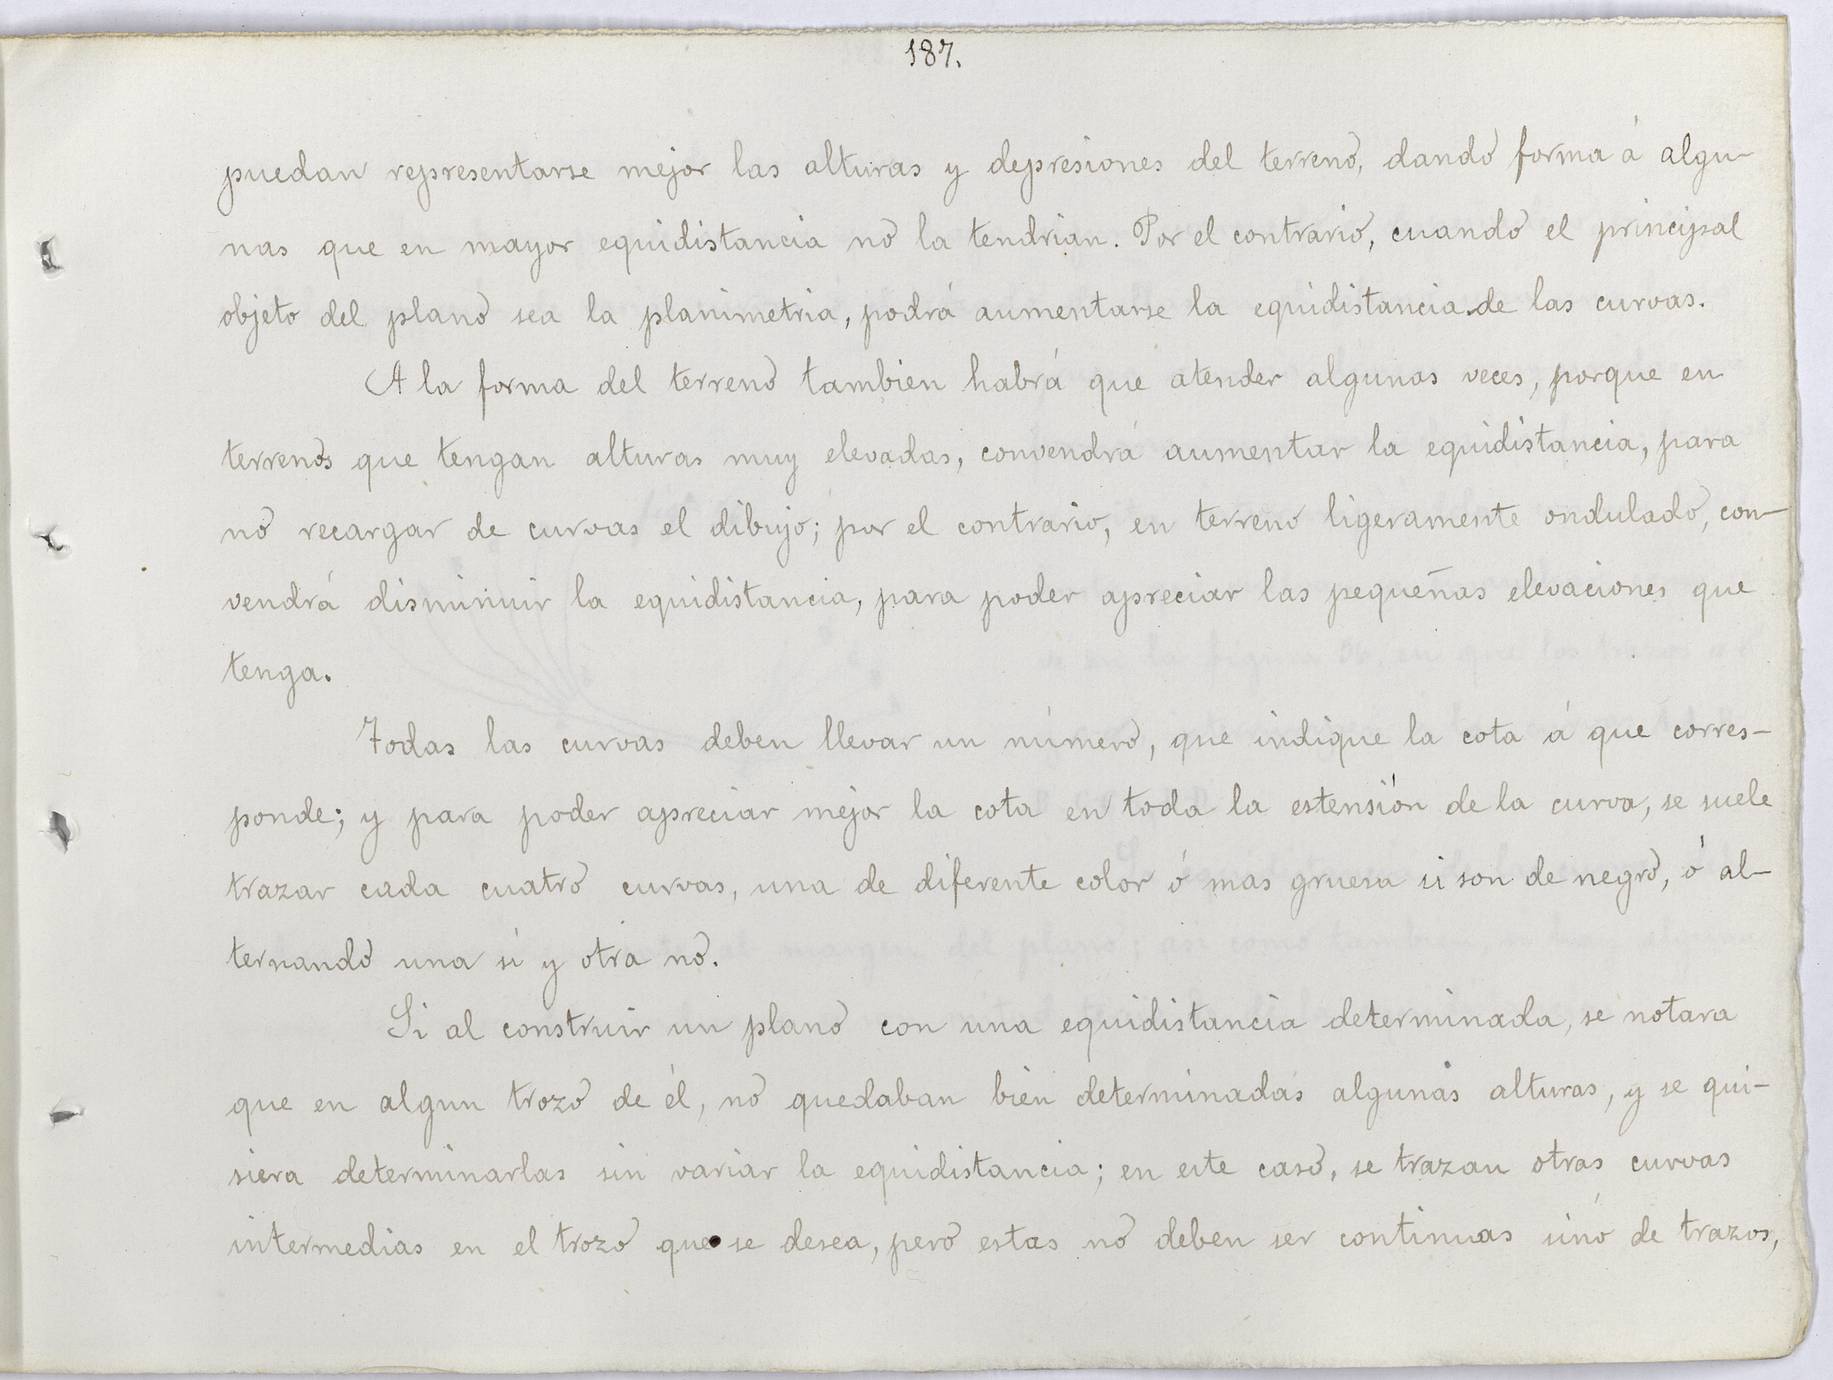 187.
puedan representarse mejor las alturas y depresiones del terreno, dando forma á algu-
nas que en mayor equidistancia no la tendrian. Por el contrario, cuando el principal
objeto del plano sea la planimetria, podrá aumentarse la equidistancia de las curvas.
A la forma del terreno tambien habrá que atender algunas veces, porque en
terrenos que tengan alturas muy elevadas, convendrá aumentar la equidistancia, para
no recargar de curvas el dibujo; por el contrario, en terreno ligeramente ondulado, con-
vendrá disminuir la equidistancia, para poder apreciar las pequeñas elevaciones que
tenga.
Todas las curvas deben llevar un número, que indique la cota á que corres-
ponde; y para poder apreciar mejor la cota en toda la estensión de la curva, se suele
trazar cada cuatro curvas, una de diferente color ó mas gruesa si son de negro, ó al-
ternando una sí y otra no.
Si al construir un plano con una equidistancia determinada, se notara
que en algun trozo de él, no quedaban bien determinadas algunas alturas, y se qui-
siera determinarlas sin variar la equidistancia; en este caso, se trazan otras curvas
intermedias en el trozo que se desea, pero estas no deben ser continuas sinó de trazos,